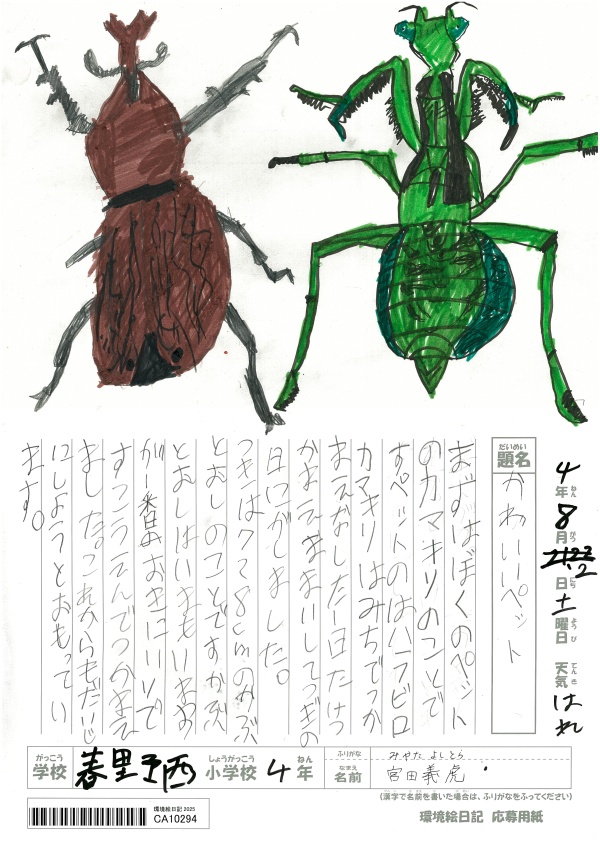 4年
8月
日
土曜日
天気
はれ
だいめい
題名
かわいいペット
まずはぼくのペット
のカマキリのことで
すペットのはハラビロ
カマキリはみちでつか
まえました1日だけつ
かまえ てつぎの
日にがしました。
つぎは 8cmのかぶ
とおしのことですかぶ
とおしはいまもいます
が一番おきにいりで
すこうえんでつかまえ
ました。これからもだいじ
にしようとおもってい
ます。
がっこう しょうがっこう ねん
学校 春野西 小学校 4年
ふりがな みやた よしとら
なまえ
名前 宮田義虎
(漢字で名前を書いた場合は、ふりがなをふってください)
環境絵日記 2025
CA10294
環境絵日記 応募用紙